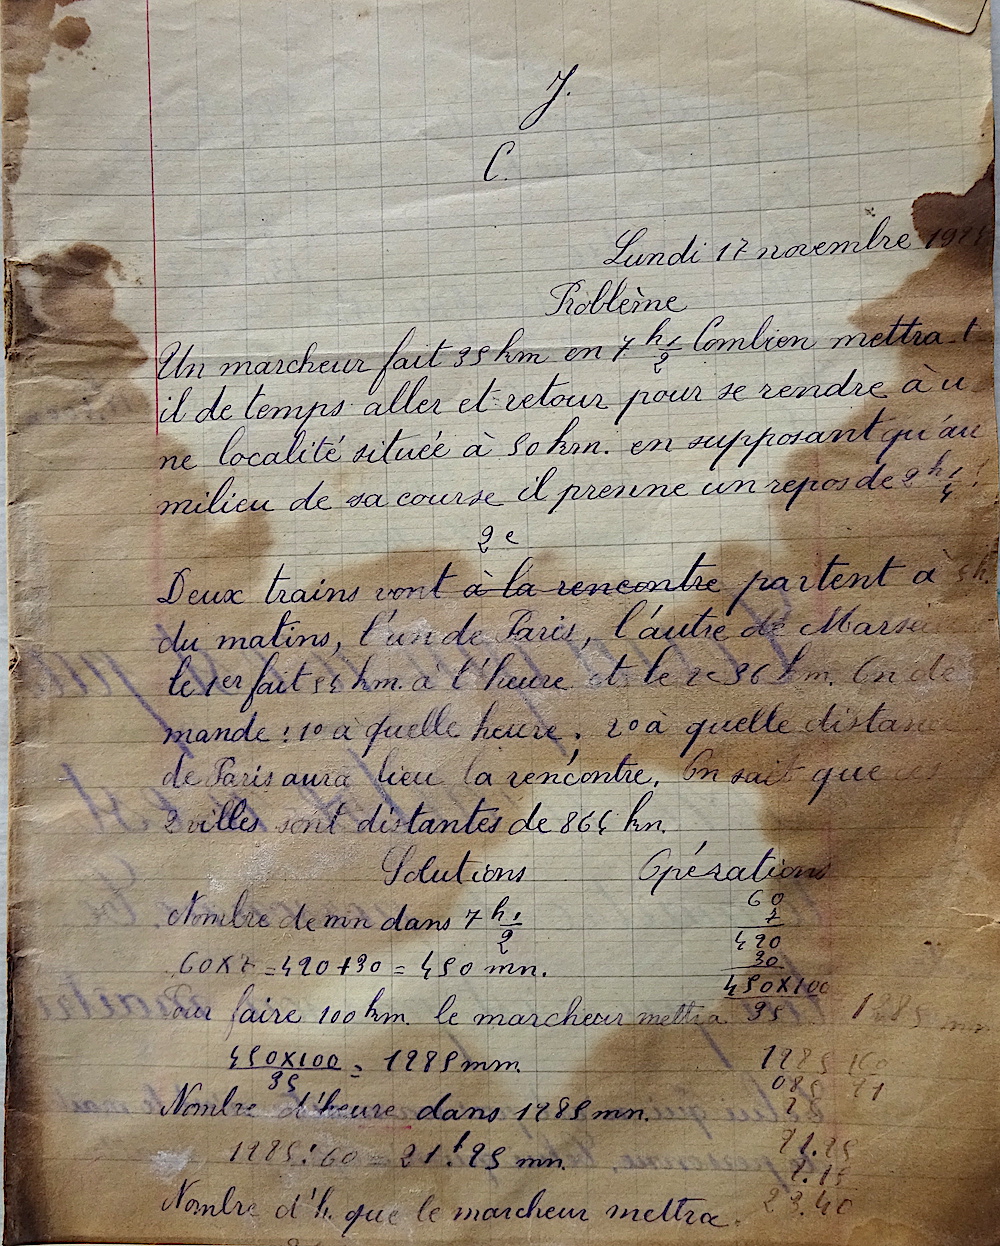 J.
C.
Lundi 17 novembre 1925
Problème
Un marcheur fait 35 km en 7 h 1/2 Combien mettra-t
il de temps aller et retour pour se rendre à u
ne localité située à 50 km. en supposant qu'au
milieu de sa course il prenne un repos de 2 h 1/4 ?
2e
Deux trains vont à la rencontre partent à 5h.
du matins, l'un de Paris, l'autre de Marsei
le 1er fait 54 km. à l'heure et le 2e 36 km. On de
mande : 1o à quelle heure, 2o à quelle distan
de Paris aura lieu la rencontre, On sait que ces
2 villes sont distantes de 864 km.
Solutions Opérations
Nombre de mn dans 7 h 1/2
60
7
420
30
60 x 7 = 420 + 30 = 450 mn.
450 x 100
35
1285 mn
Pour faire 100 km. le marcheur mettra
450 x 100 / 35 = 1285 mm.
1285 60
085 21
2
Nombre d'heure dans 1285 mn.
1285 : 60 = 21 h 25 mn.
21.25
2.15
23.40
Nombre d'h. que le marcheur mettra.